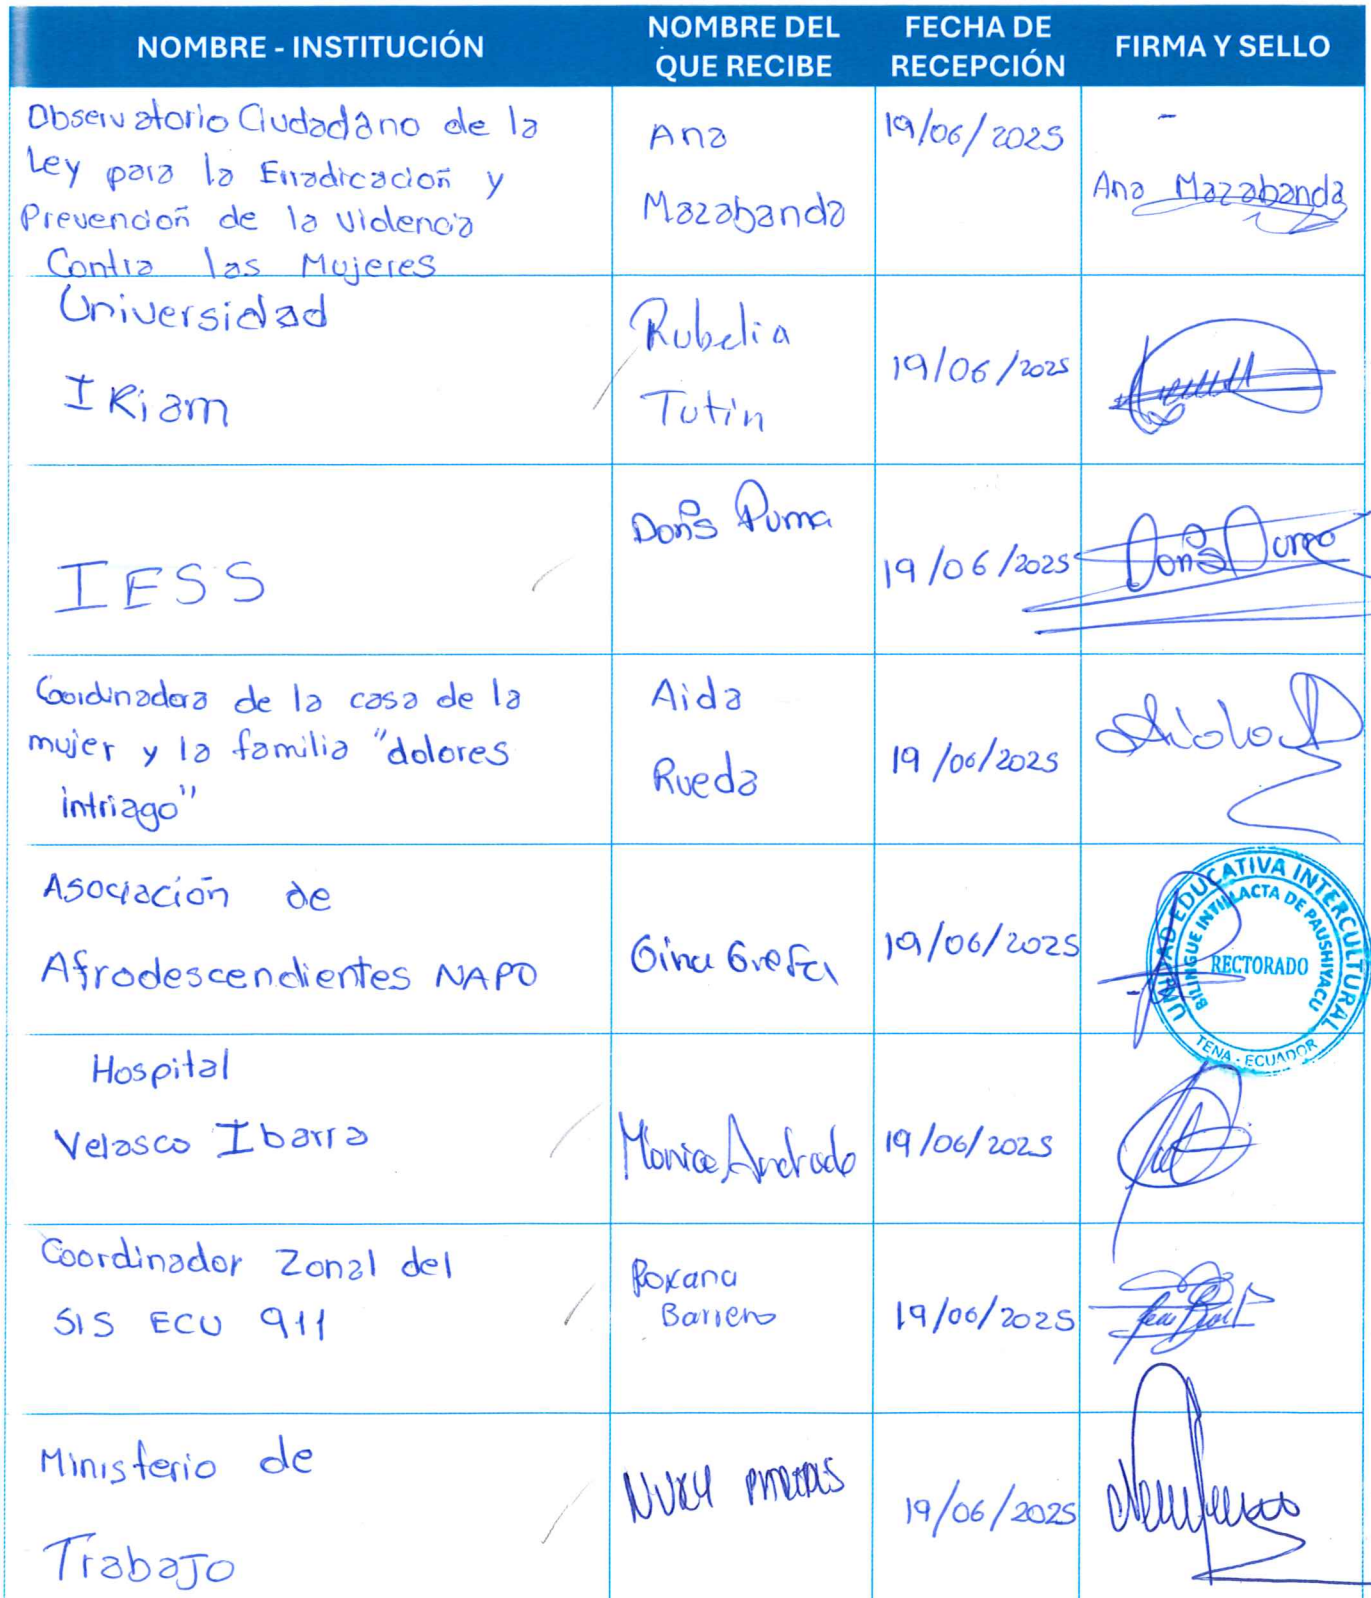 NOMBRE - INSTITUCIÓN
NOMBRE DEL
QUE RECIBE
FECHA DE
RECEPCIÓN
FIRMA Y SELLO
Observatorio Ciudadano de la
Ley para la Erradicación y
Prevención de la Violencia
Contra las Mujeres
Ana
Mazabanda
19/06/2025
-
Ana Mazabanda
Universidad
IKiam
Rubelia
Tutin
19/06/2025
IESS
Doris Puma
19/06/2025
Doris Puma
Coordinadora de la casa de la
mujer y la familia "dolores
intriago"
Aida
Rueda
19/06/2025
Asociación de
Afrodescendientes NAPO
Gina Grefa
19/06/2025
UNIDAD EDUCATIVA INTERCULTURAL
BILINGUE INTILLACTA DE PAUSHIYACU
RECTORADO
TENA - ECUADOR
Hospital
Velasco Ibarra
Monica Andrade
19/06/2025
Coordinador Zonal del
SIS ECU 911
Roxana
Barreno
19/06/2025
Ministerio de
Trabajo
19/06/2025